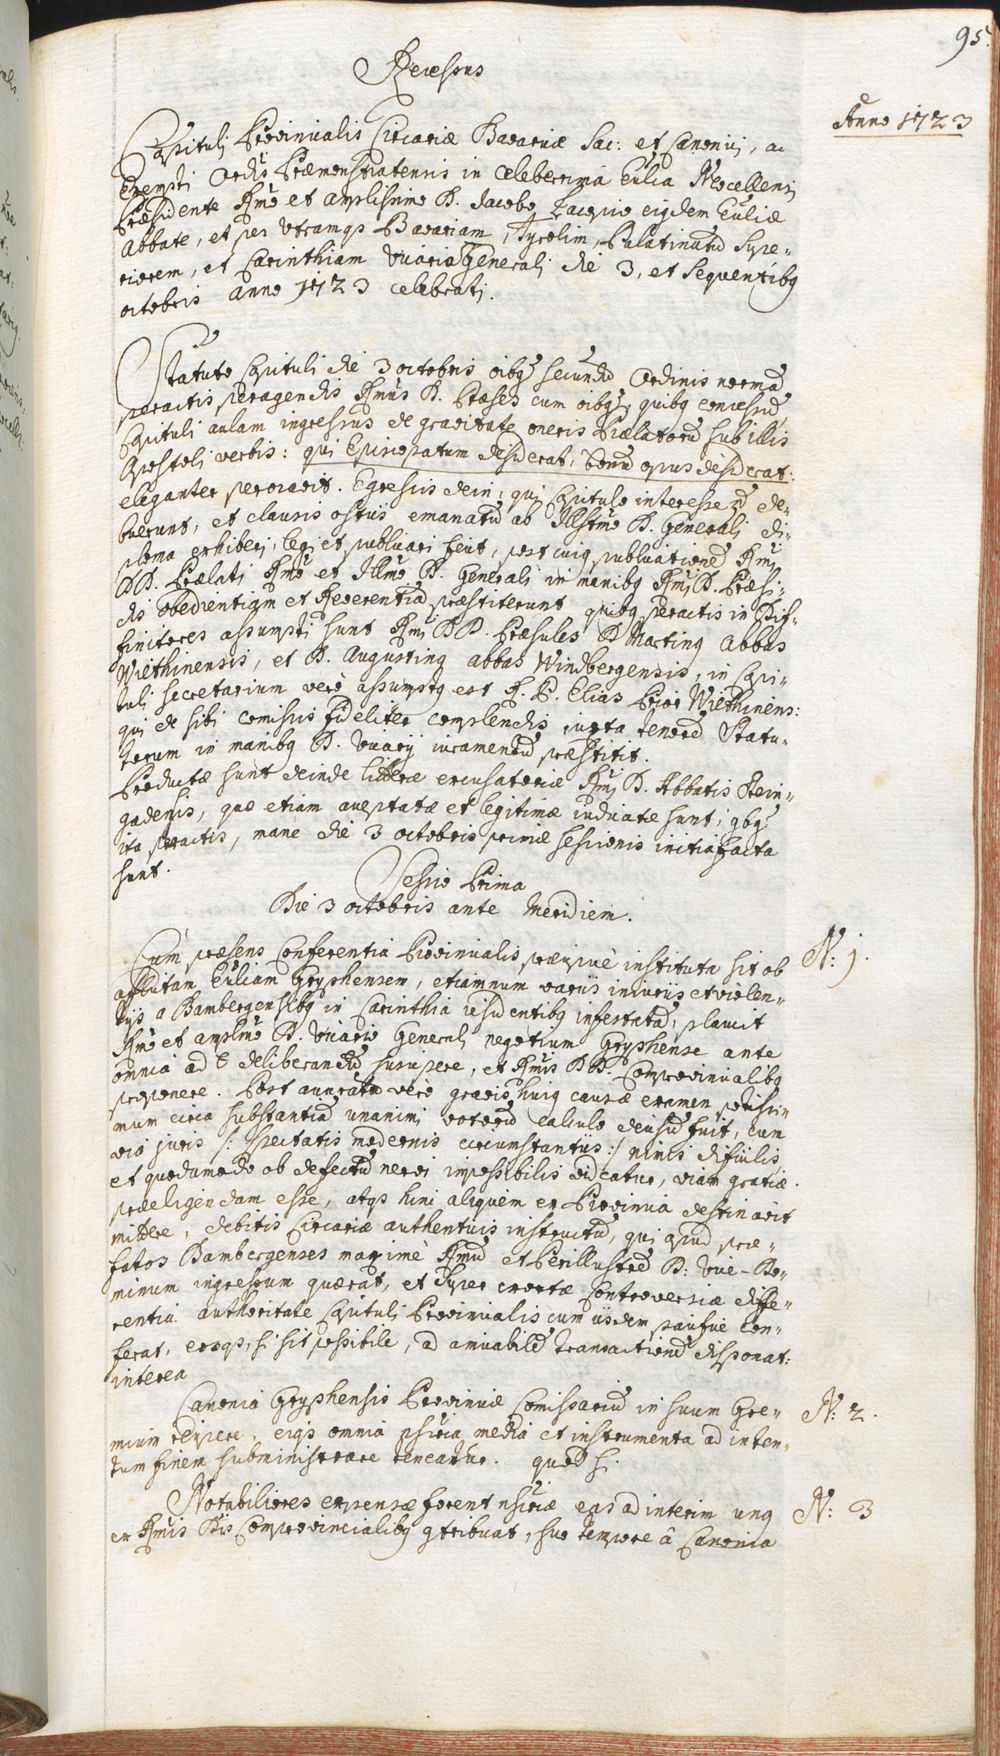 95.
Anno 1723
Recessus
Capituli Provincialis Circariæ Bavaricæ Sac: et Canonici, ac
Exempti Ordis Præmonstratensis in celeberrima Ecclia Neocellensi
Præsidente Rmo et amplissimo D. Jacobo Zacquio eiqdem Eccliæ
Abbate, et per utramqs Bavariam, Tyrolim, Palatinatu Supe-
riorem, et Carinthiam Vicario Generali die 3, et sequentibq
octobris anno 1723 celebrati.
Statuto Capituli die 3 octobris oibq secundu Ordinis norma
peractis peragendis Rmus D. Præses cum oibq, quibq concessu
Capituli aulam ingressus de gravitate oneris Prælatoru sub illis
Apostoli verbis: qui Episcopatum desiderat, bonu opus desiderat:
eleganter peroravit. Egressis dein, qui Capitulo interesse n de-
buerunt, et clausis ostiis emanatu ab Illstmo D. Generali di-
ploma exhiberi, legi et publicari fecit, post cuiq publicatione Rmi
DD. Prælati Rmo et Illmo D. Generali in manibq Rmi D. Præsi-
dis obedientiam et Reverentia præstiterunt quibq peractis in Dif-
finitores assumpti sunt Rmi DD. Præsules D Martinq Abbas
Wilthinensis, et D. Augustinq abbas Windbergensis, in Capi-
tuli secretarium verò assumptq est R. P. Elias Prior Wilthinens:
qui de sibi comissis fideliter complendis iuxta tenore Statu-
torum in manibq D. Vicarij iuramentu præstitit.
Productæ sunt deinde litteræ excusatoriæ Rmi D. Abbatis Stein-
gadensis, quæ etiam acceptatæ et legitimæ iudicatæ sunt, qbq
ita peractis, mane die 3 octobris primæ sessionis initia facta
sunt.
Sessio Prima
Die 3 octobris ante Meridiem.
N: 1.
Cum præsens Conferentia Provincialis præcipuè instituta sit ob
afflictam Eccliam Gryphensem, etiamnum variis iniuriis et violen-
tiis a Bambergensibq in Carinthia residentibq infestata, placuit
Rmo et amplmo D. Vicario Generali negotium Gryphense ante
omnia ad deliberandu suscipere, et Rmis DD. Comprovincialibq
proponere. Post accuratu verò gravis huiq causæ examen potissi-
mum circa substantia unanimi votoru calculo decisu fuit, cum
via juris /: spectatis modernis circumstantiis :/ nimis difficilis,
et quodamodo ob defectu nervi impossibilis videatur, viam gratiæ
præeligendam esse, atqs hinc aliquem ex Provincia destinari
mittere, debitis Circariæ authenticis instructu, qui apud præ-
fatos Bambergenses maximè Rmu et Perillustre D: Vice-Do-
minum ingressum quærat, et super exortæ Controversiæ diffe-
rentia authoritate Capituli Provincialis cum iisdem pacificè con-
ferat, eosqs, si sit possibile, ad amicabile transactione disponat:
interea
N: 2.
Canonia Gryphensis Provinciæ Comissariu in suum Gre-
mium recipere, eiqs omnia nsria media et instrumenta ad inten-
tum finem subministrare teneatur. quod si
N: 3
Notabiliores expensæ forent nsriæ eas ad interim unq
ex Rmis Dis Comprovincialibq qtribuat, suo tempore â Canonia